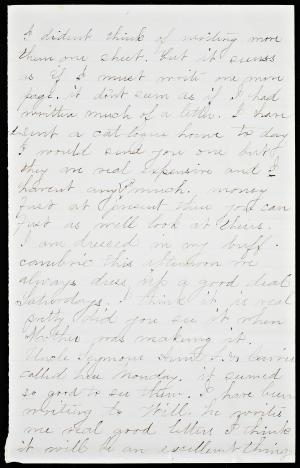 I dident think of writing more
then one sheet. but it seems
as if I must write one more
page. it dont seem as if I had
written much of a letter. I have
sent a catalogue home to day
I would send you one but
they are real expensive and I
havent any much money
just at present then you can
just as well look at theirs.
I am dressed in my buff
cambric this afternoon we
always dress up a good deal
Saturdays. I think it is real
pretty did you see it when
Mother was making it.
Uncle Seymour Aunt
called here Monday. it seemed
so good to see them. I have been
writing to Will. he writes
me real good letters I think
it will be an excellent thing